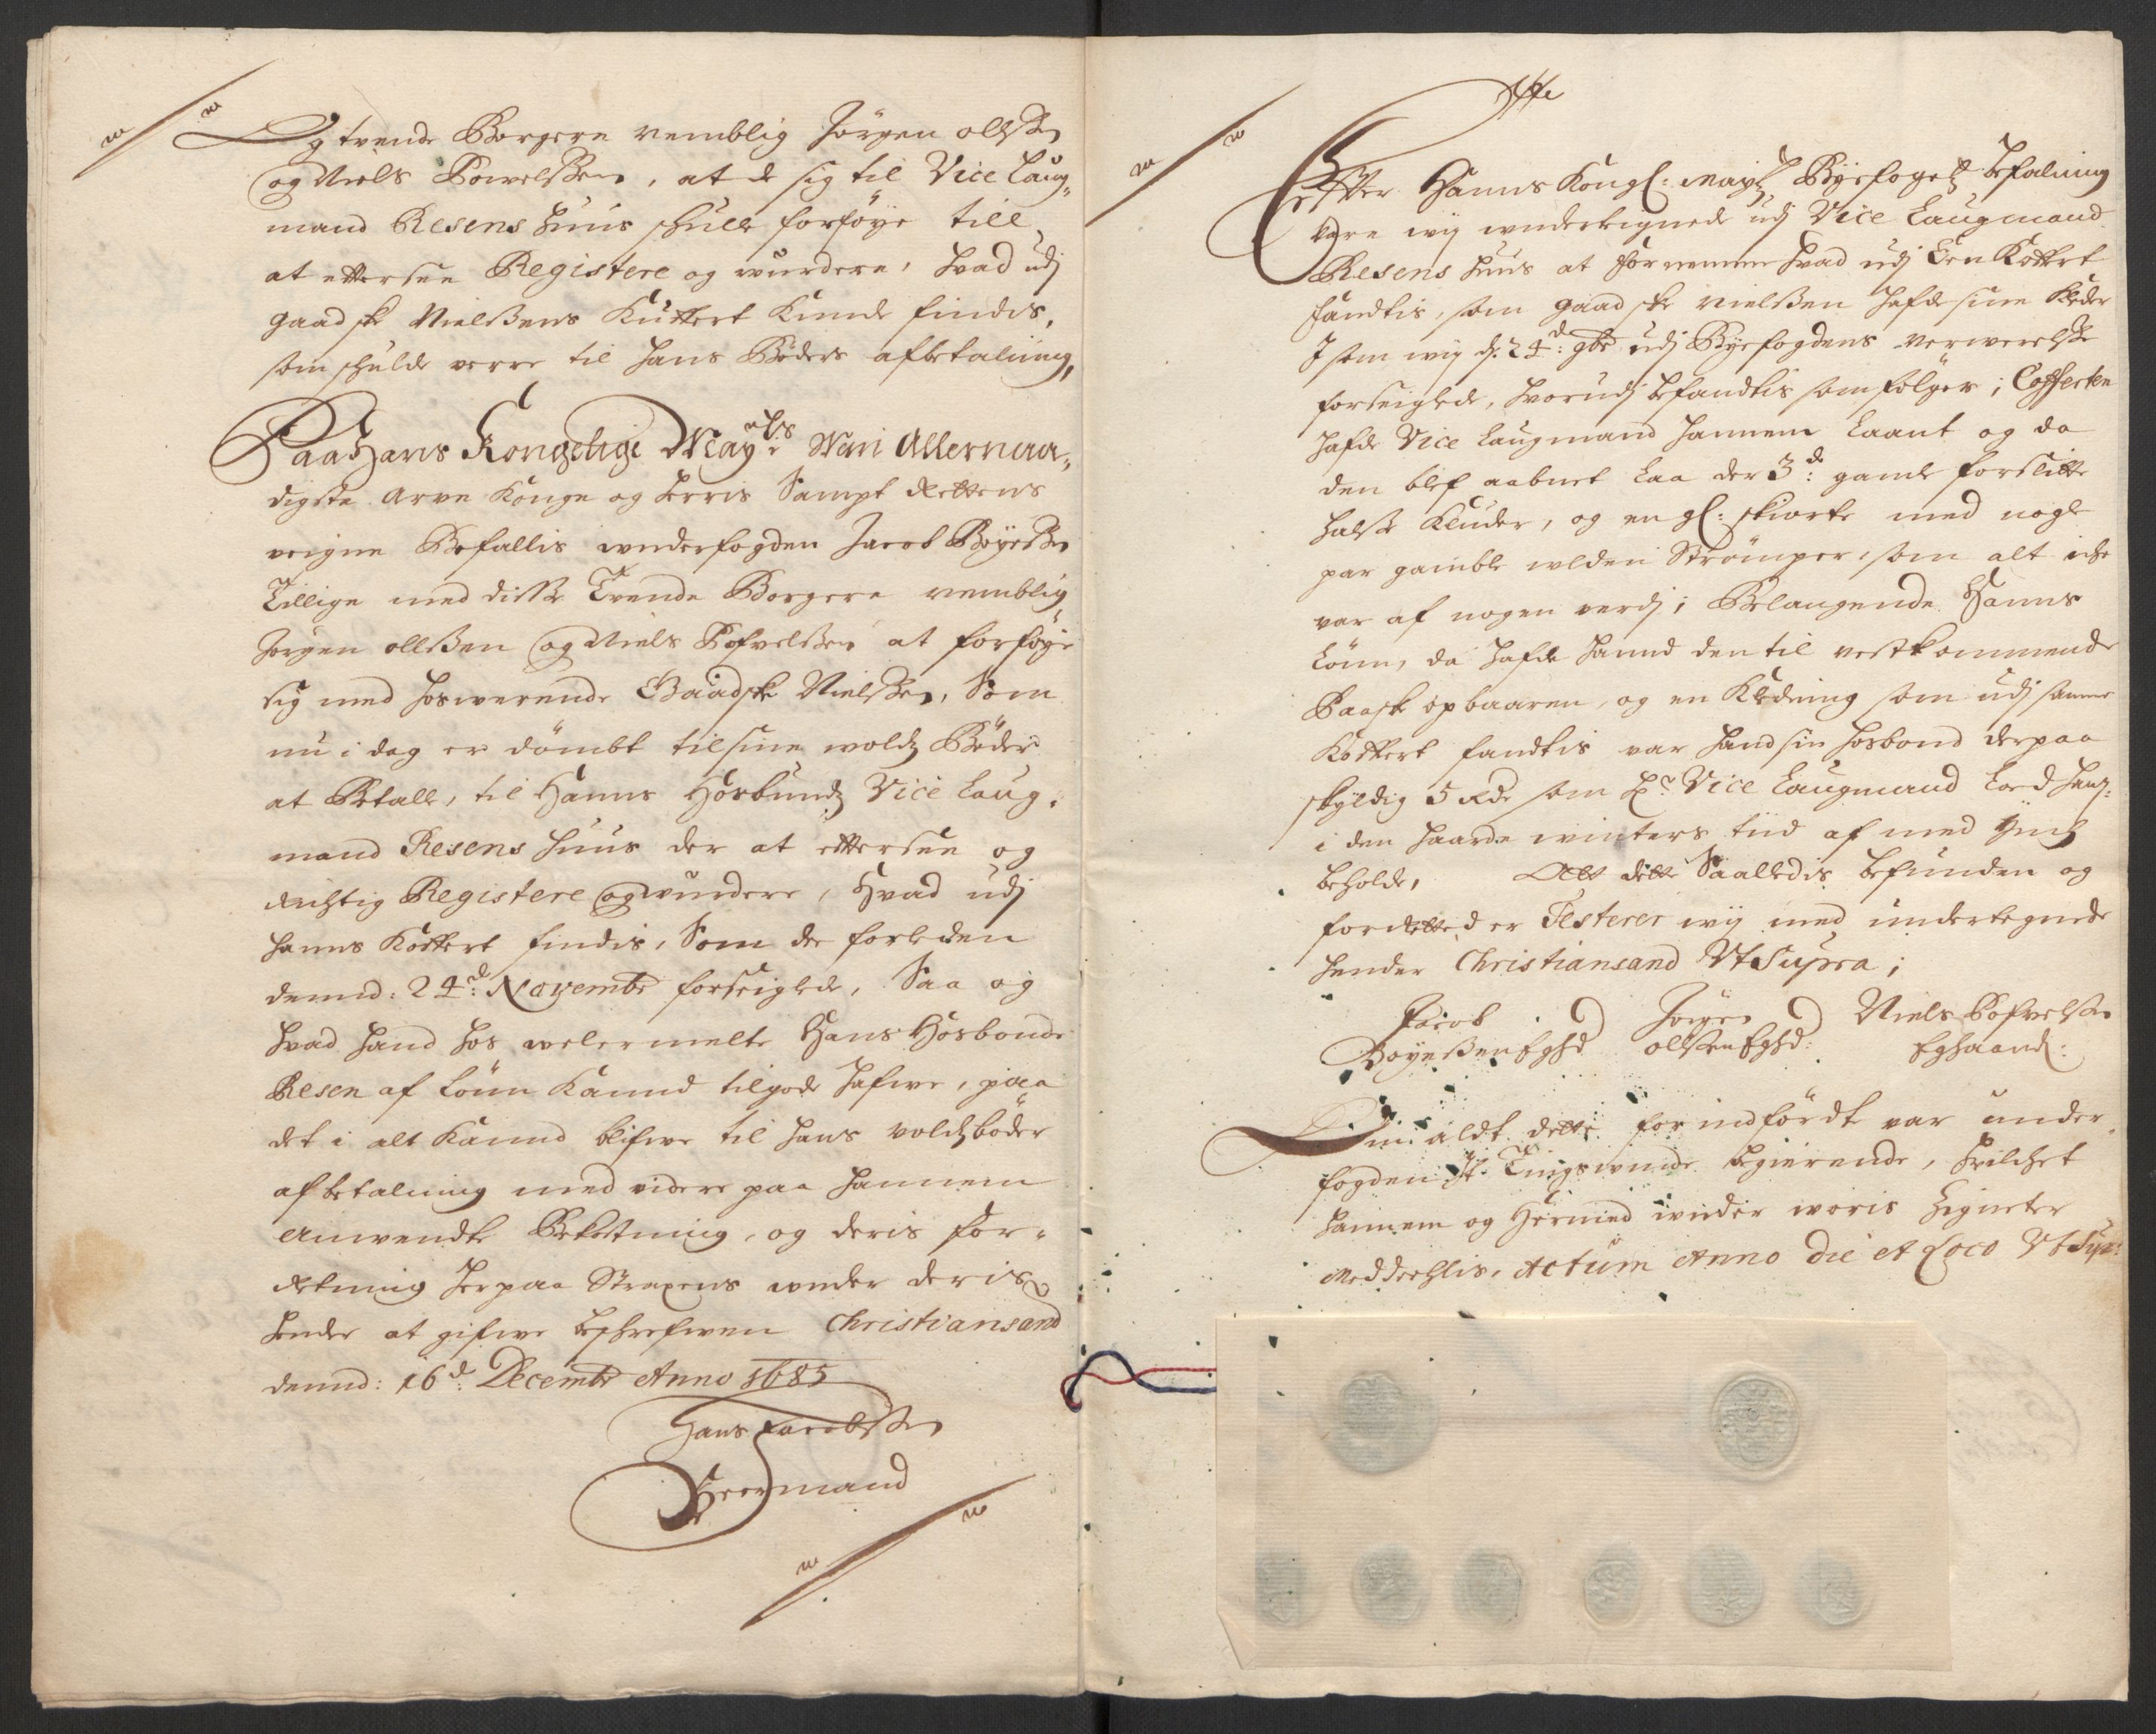 Og tvende Borgere nemblig Jörgen ollßen
og Niels Powelßen, at de sig til Vice Laug-
mand Resens Huus schulle forföye till
at ettersee Registere og wurdere, hvad udj
Gaadske Nielßens Kuffert Kunde findis,
som schulde verre til hans Böders afbetaling,
Paa Hans Kongelige Mayts Min Allernaa-
digste Arve Konge og Herris Sampt Rettens
veigne Befallis underfogden Jacob Boyeßen
Tillige med disse Tvende Borgere nemblig
Jörgen ollßen og Niels Pofvelßen at forföye
sig med hoswerende Gaadske Nielßen, Som
nu i dag er dömbt til sine woldz Böder
at Betalle, til Hanns Hosbundz Vice Laug-
mand Resens Huus der at ettersee og
Richtig Registere og wurdere, Hvad udj
Hanns Koffert findis, Som der forleden
dennd: 24d: Novembr forseiglede, Saa og
hvad Hand hos welermelte Hans Hosbonde
Resen af Lönn Kannd tilgode Hafwe, paa
det i alt Kannd blifwe til Hans voldzböder
afbetalning med videre paa Hannem
Anvendte Bekostning, og deris for-
Retning herpaa Straxens under deris
Hender at gifwe beschrefwen Christiansand
dennd: 16d: Decembr Anno 1685
Hans Jacobßen
Heermand
Efter Hanns Kongl: Maytz Byefogetz befaling
vare wij underteignede udj Vice Laugmand
Resens Huus at fornemme hvad udj den Koffert
fandtis, som Gaadske Nielßen hafde sine Kleder
I som wij d: 24d: 9br udj Byefogdens nerwerelße
forseiglede, hvorudj befandtis som fölger; Cofferten
hafde Vice Laugmand hannem Laant og da
den blef aabnet laa der 3de: gamle forslitte
Halße Kluder, og en gl: skiorte med nogle
par gamble ulden Strömper, som alt iche
var af nogen verdj; Belangende Hanns
Lönn, da hafde hannd den til nestkommende
Paaske opbaaren, og en Kledning som udj samme
Koffert fandtis var hand sin hosbond derpaa
skyldig 5 Rdr som Hr Vice Laugmand loed hans
i den haarde winters tiid af med
beholde, Alt dette Saalledis befunden og
forretted er Testerer wij med undertegnede
hender Christiansand Ut Supra;
Jacob Jörgen Niels Pofvelßen
Boyeßen Eghd ollßen Eghd: Eghaand:
Om aldt dette forindfördt var under-
fogden it Tingswinde begierende, hvilchet
hannem og Hermed under woris Zigneter
Meddeehlis, Actum Anno Die et Loco Ut Supr: